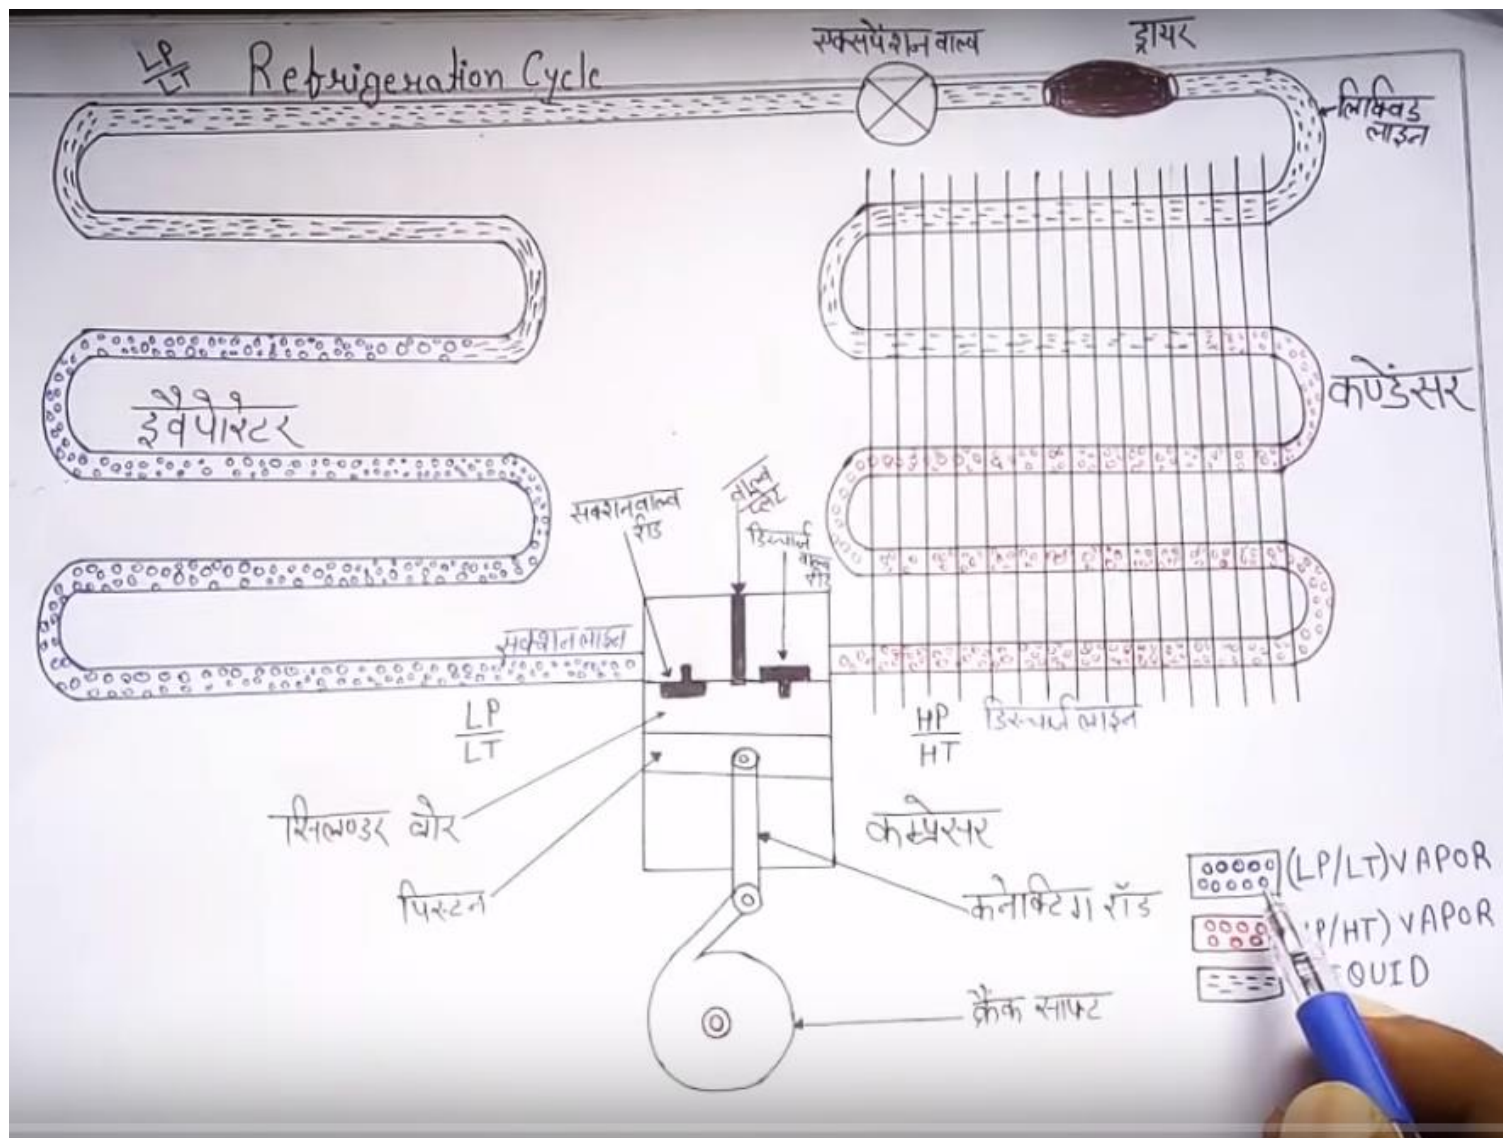 LP
LT
Refrigeration Cycle
एक्सपेंशन वाल्व
ड्रायर
लिक्विड
लाइन
इवैपोरेटर
कण्डेंसर
सक्शन वाल्व
रीड
वाल्व
प्लेट
डिस्चार्ज
वाल्व
रीड
सक्शन लाइन
LP
LT
HP
HT
डिस्चार्ज लाइन
सिलण्डर बोर
कम्प्रेसर
पिस्टन
कनेक्टिग रॉड
क्रैंक साफ्ट
(LP/LT) VAPOR
P/HT) VAPOR
QUID